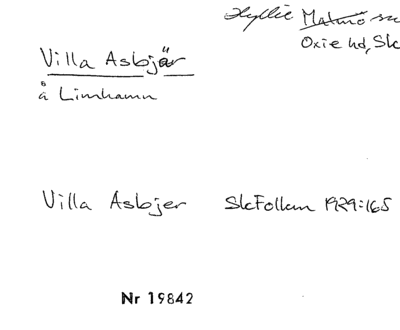 Hyllie Malmö sn
Oxie hd, Sk
Villa Asbjär
å Limhamn
Villa Asbjer SkFolkm 1929:165
Nr 19842